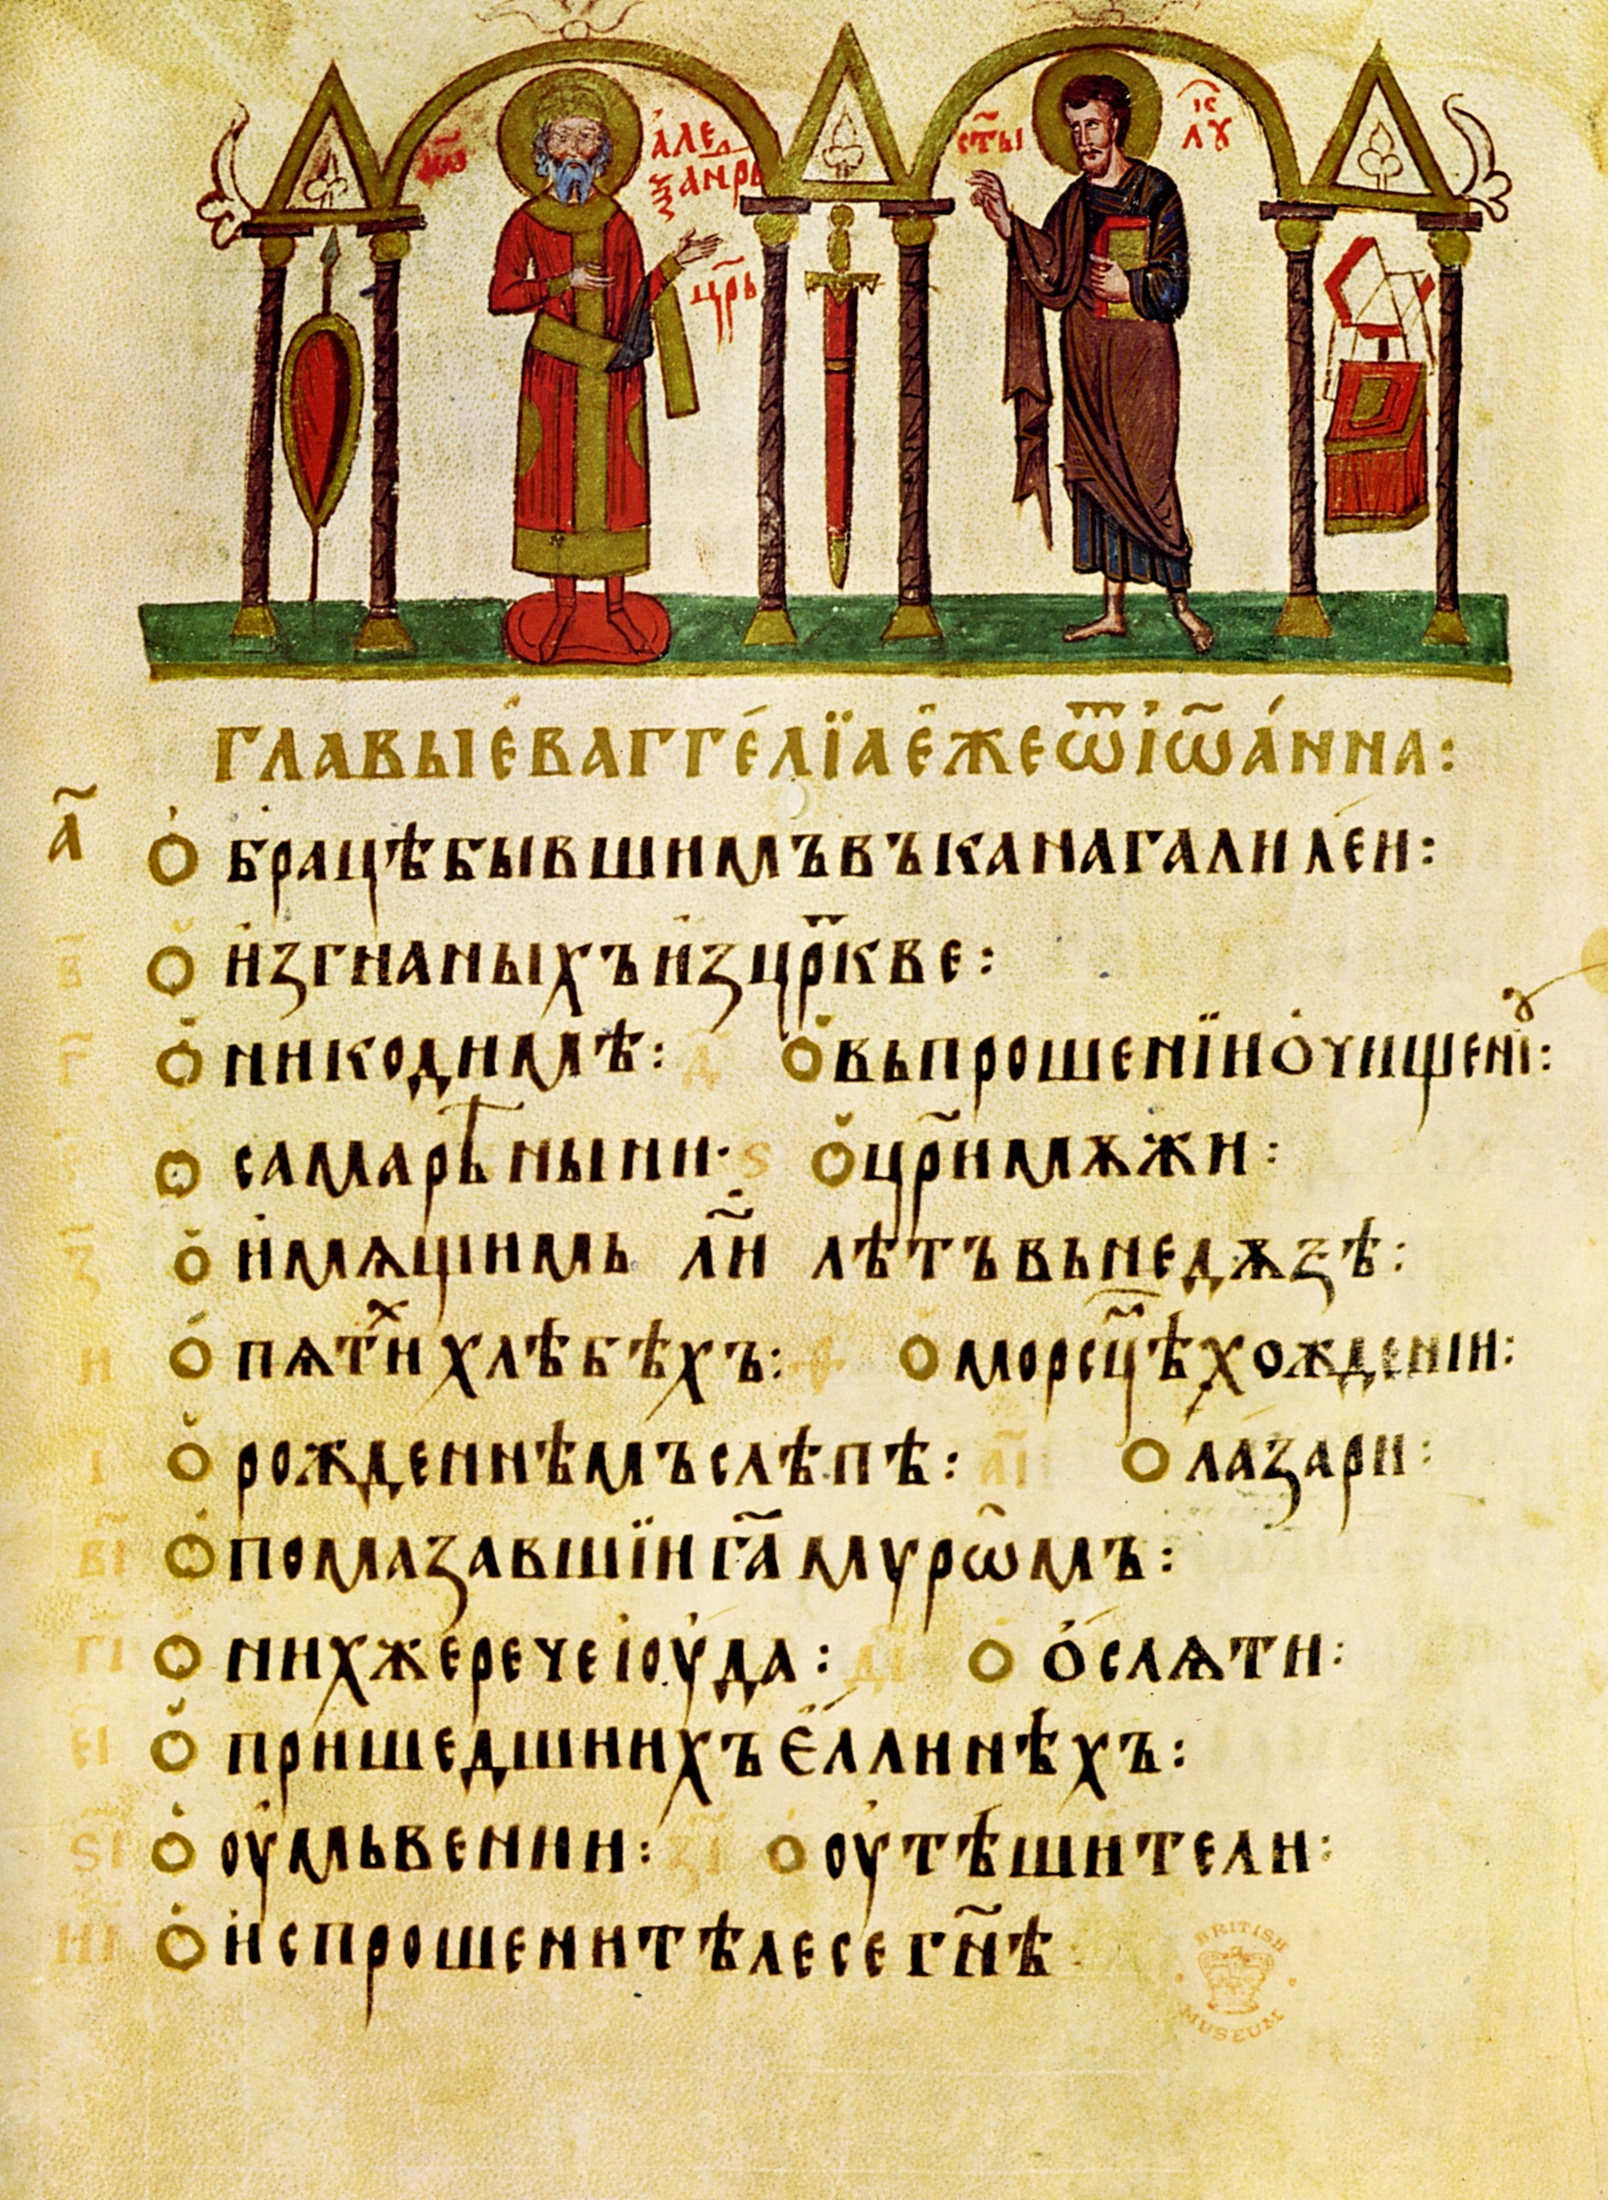 і̑с
а҆ле
ѯандрь
црь
ст҃ы
лꙋ
главы е҆ваггелїа е҆же ѿ і҆ѡа́нна:
а҃ О брацѣ бывшимъ въ кана галилеи:
в҃ О изгнаныхъ из цр҃кве:
г҃ О никодимѣ: д҃ О вьпрошенїи ѡ чищенїꙋ:
О самарѣныни· ѕ О цр҃и мѫжи:
з҃ О имѫщимь л҃и лѣтъ вь недѫзѣ:
и О пѧтⷯи хлѣбѣхъ: ѳ О морсцѣⷨ хождении:
і О рожденнѣмъ слѣпѣ: а҃і О лазари:
в҃і О помазавшїи г҃а мурѡмъ:
г҃і О нихже рече іоуда: д҃і О ослѧти:
е҃і О пришедшиихъ еллинѣхъ:
ѕ҃і О оумьвении: з҃і О оутѣшители:
и҃і О испрошени тѣлесе гн҃ѣ
BRITISH
MUSEUM